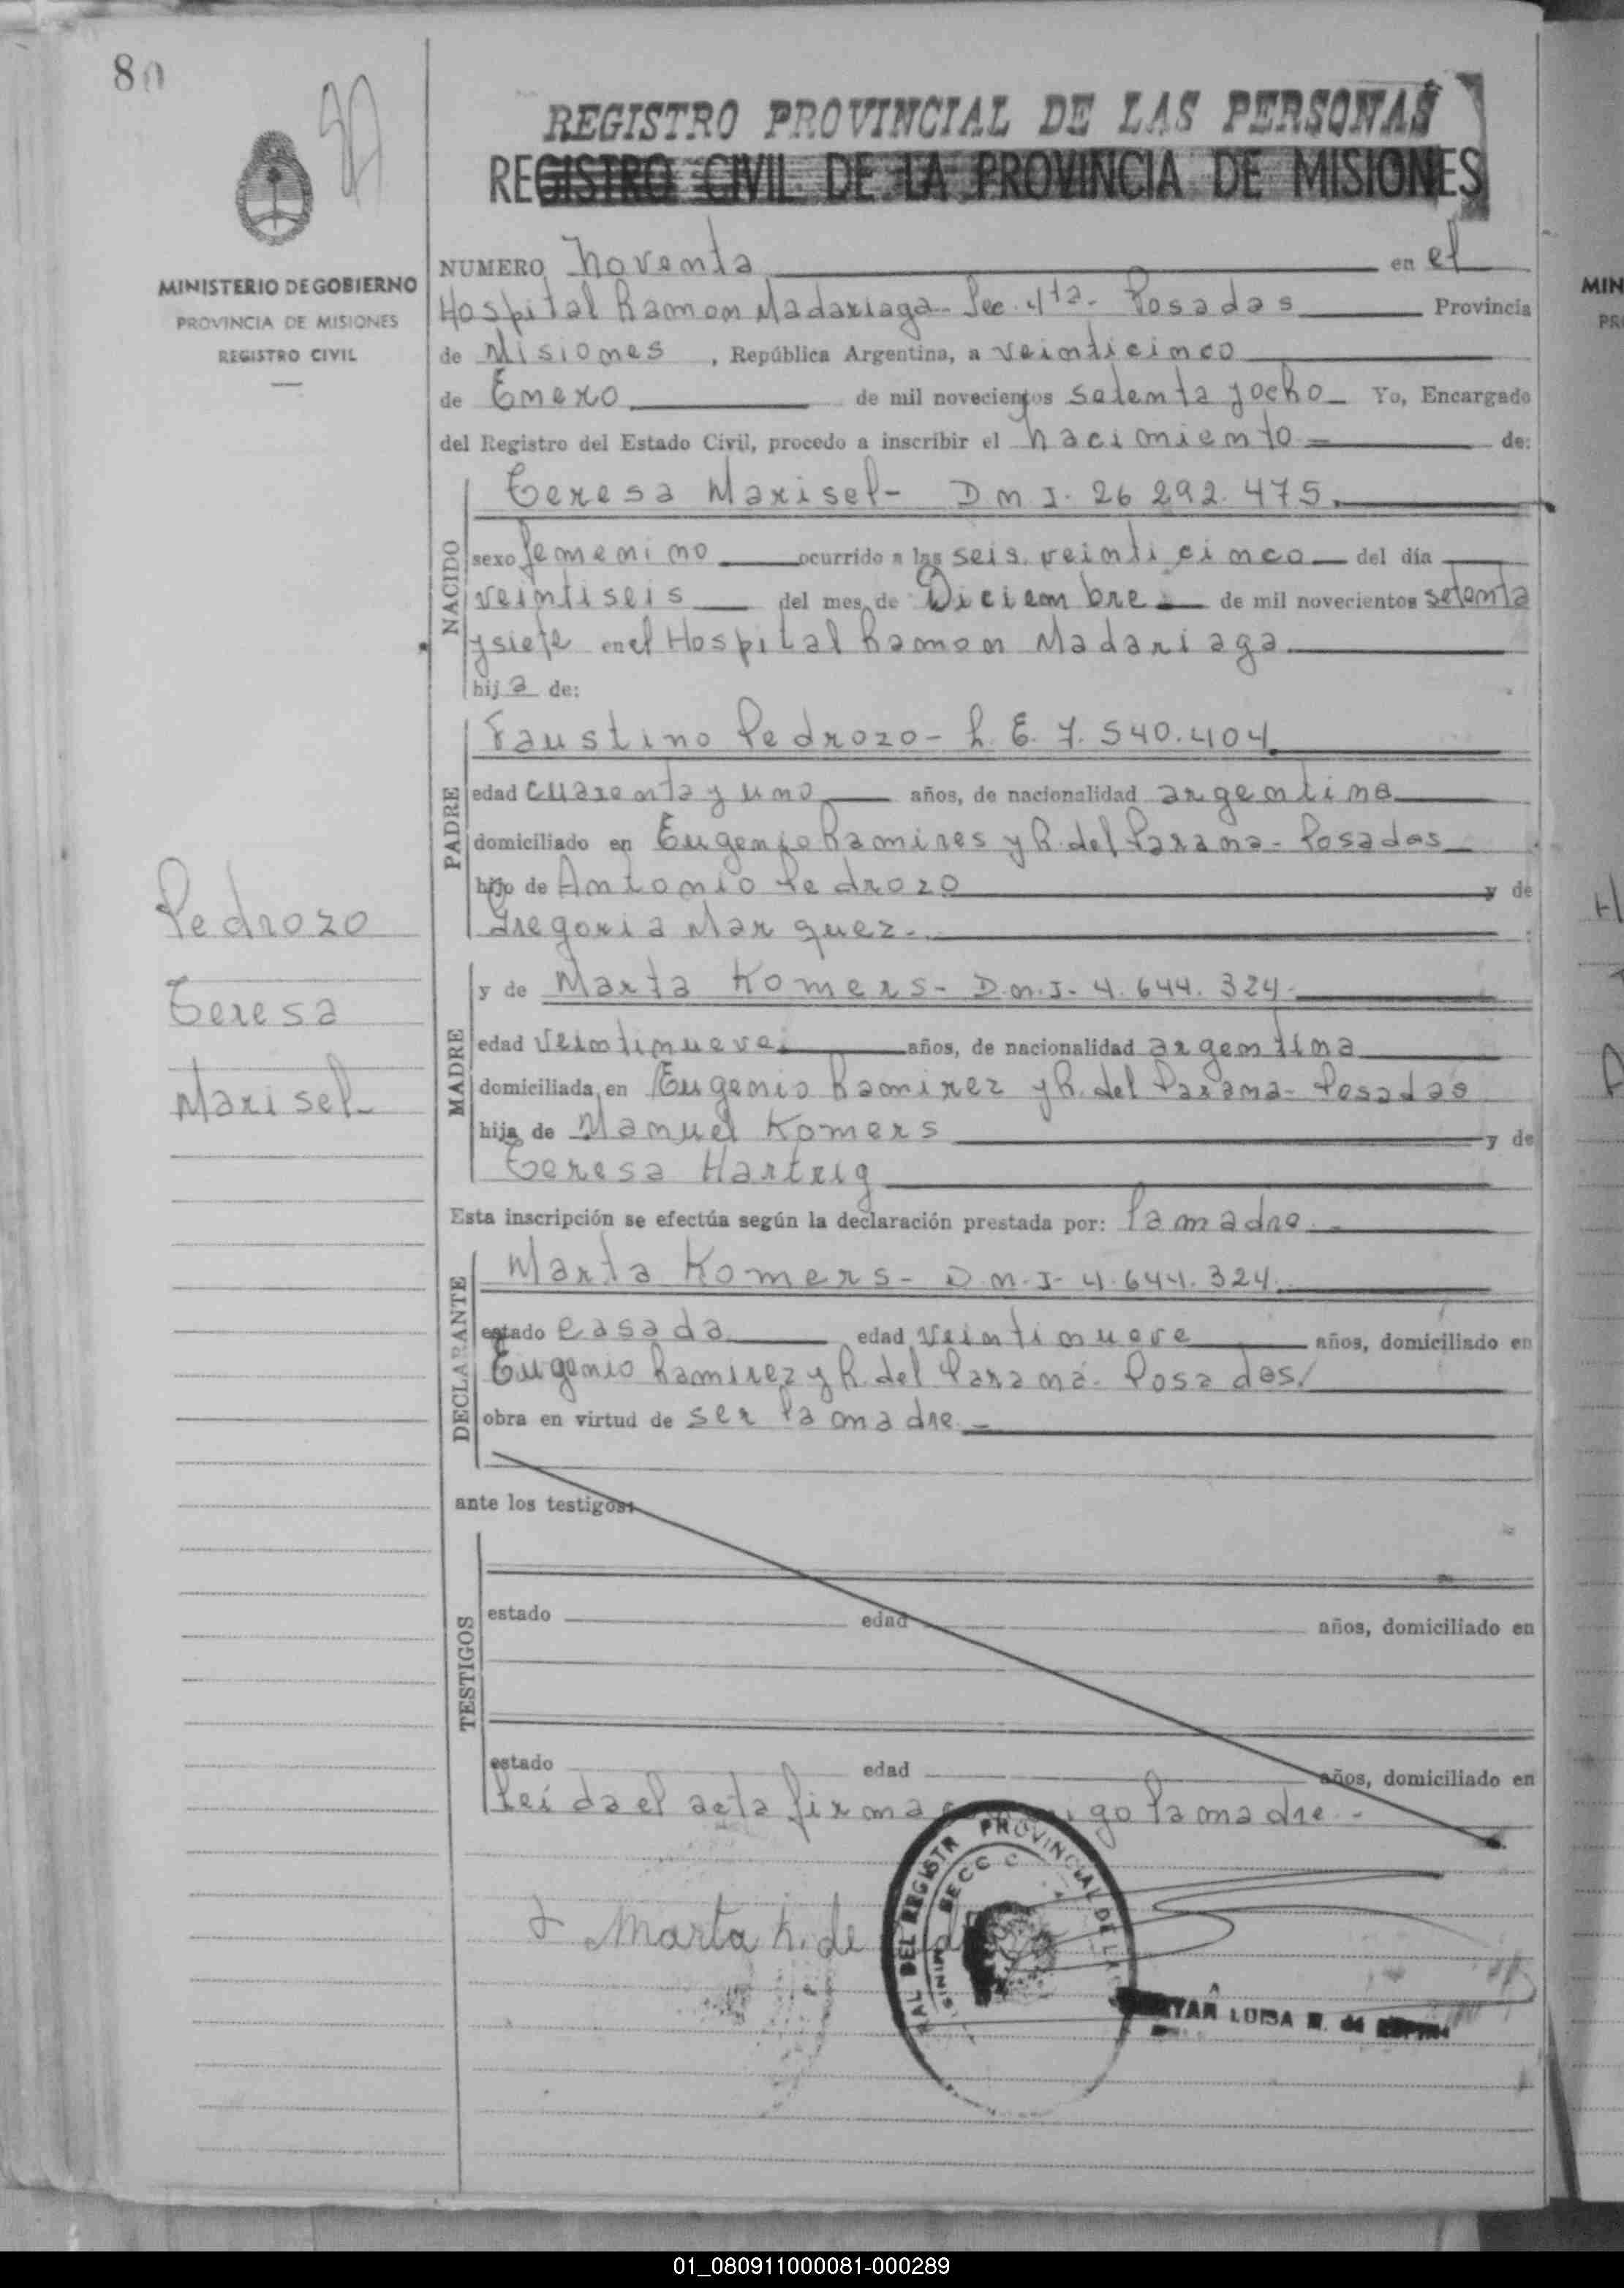 80
90
REGISTRO PROVINCIAL DE LAS PERSONAS
REGISTRO CIVIL DE LA PROVINCIA DE MISIONES
MINISTERIO DE GOBIERNO
PROVINCIA DE MISIONES
REGISTRO CIVIL
NUMERO Noventa en el
Hospital Ramon Madariaga- Sec. 4ta- Posadas Provincia
de Misiones, República Argentina, a veinticinco
de Enero de mil novecientos setenta y ocho Yo, Encargado
del Registro del Estado Civil, procedo a inscribir el nacimiento de:
NACIDO
Teresa Marisel- D.N.I. 26.292.475.
sexo femenino ocurrido a las seis veinticinco del día
veintiseis del mes de Diciembre de mil novecientos setenta
y siete en el Hospital Ramon Madariaga.
hija de:
PADRE
Faustino Pedrozo- L.E. 7.540.404
edad cuarenta y uno años, de nacionalidad argentina
domiciliado en Eugenio Ramires y R. del Parana- Posadas
hijo de Antonio Pedrozo y de
Gregoria Marquez-
Pedrozo
Teresa
Marisel-
MADRE
y de Marta Komers- D.N.I- 4.644.324-
edad veintinueve años, de nacionalidad argentina
domiciliada en Eugenio Ramirez y R. del Parana- Posadas
hija de Manuel Komers y de
Teresa Hartrig
Esta inscripción se efectúa según la declaración prestada por: la madre.-
DECLARANTE
Marta Komers- D.N.I- 4.644.324.
estado casada edad veintinueve años, domiciliado en
Eugenio Ramirez y R. del Paraná- Posadas/
obra en virtud de ser la madre.-
ante los testigos:
TESTIGOS
estado edad años, domiciliado en
estado edad años, domiciliado en
Leida el acta firma conmigo la madre.-
Marta K. de
PROVINCIAL DE LA
DEL REGISTR
LUISA
MIN
PR
01_080911000081-000289